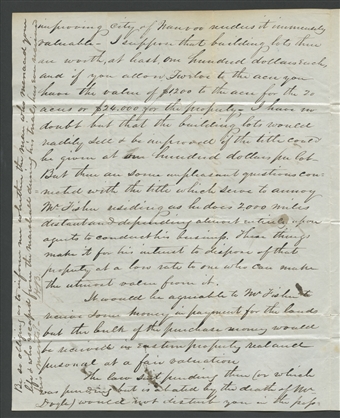 improving City of Nauvoo renders it immensely
valuable. I suppose that building lots there
are worth, at least one hundred dollars each,
and if you allow Twelve to the acre you
have the value of $1200 to the acre for the 20
acres or $24.000 for the property. I have no
doubt but that the building lots would
readily sell & be improved if the title could
be given at one hundred dollars per lot.
But there are some unpleasant questions con-
nected with the title which serve to annoy
Mr Fisher residing as he does 2000 miles
distant and depending almost entirely upon
agents to conduct his business. These things
make it for his interest to dispose of that
property at a low rate to one who can make
the utmost value from it.
It would be agreeable to Mr Fisher to
receive some money in payment for the lands
but the bulk of the purchase money would
be received in eastern property real and
personal at a fair valuation
The law suit pending then (or which
was pending but abated by the death of Mr
Doyle) would not disturb you in the pos-
Be so obliging as to inform me whether the man who menaced your
life & who escaped from the marshalls during his trial